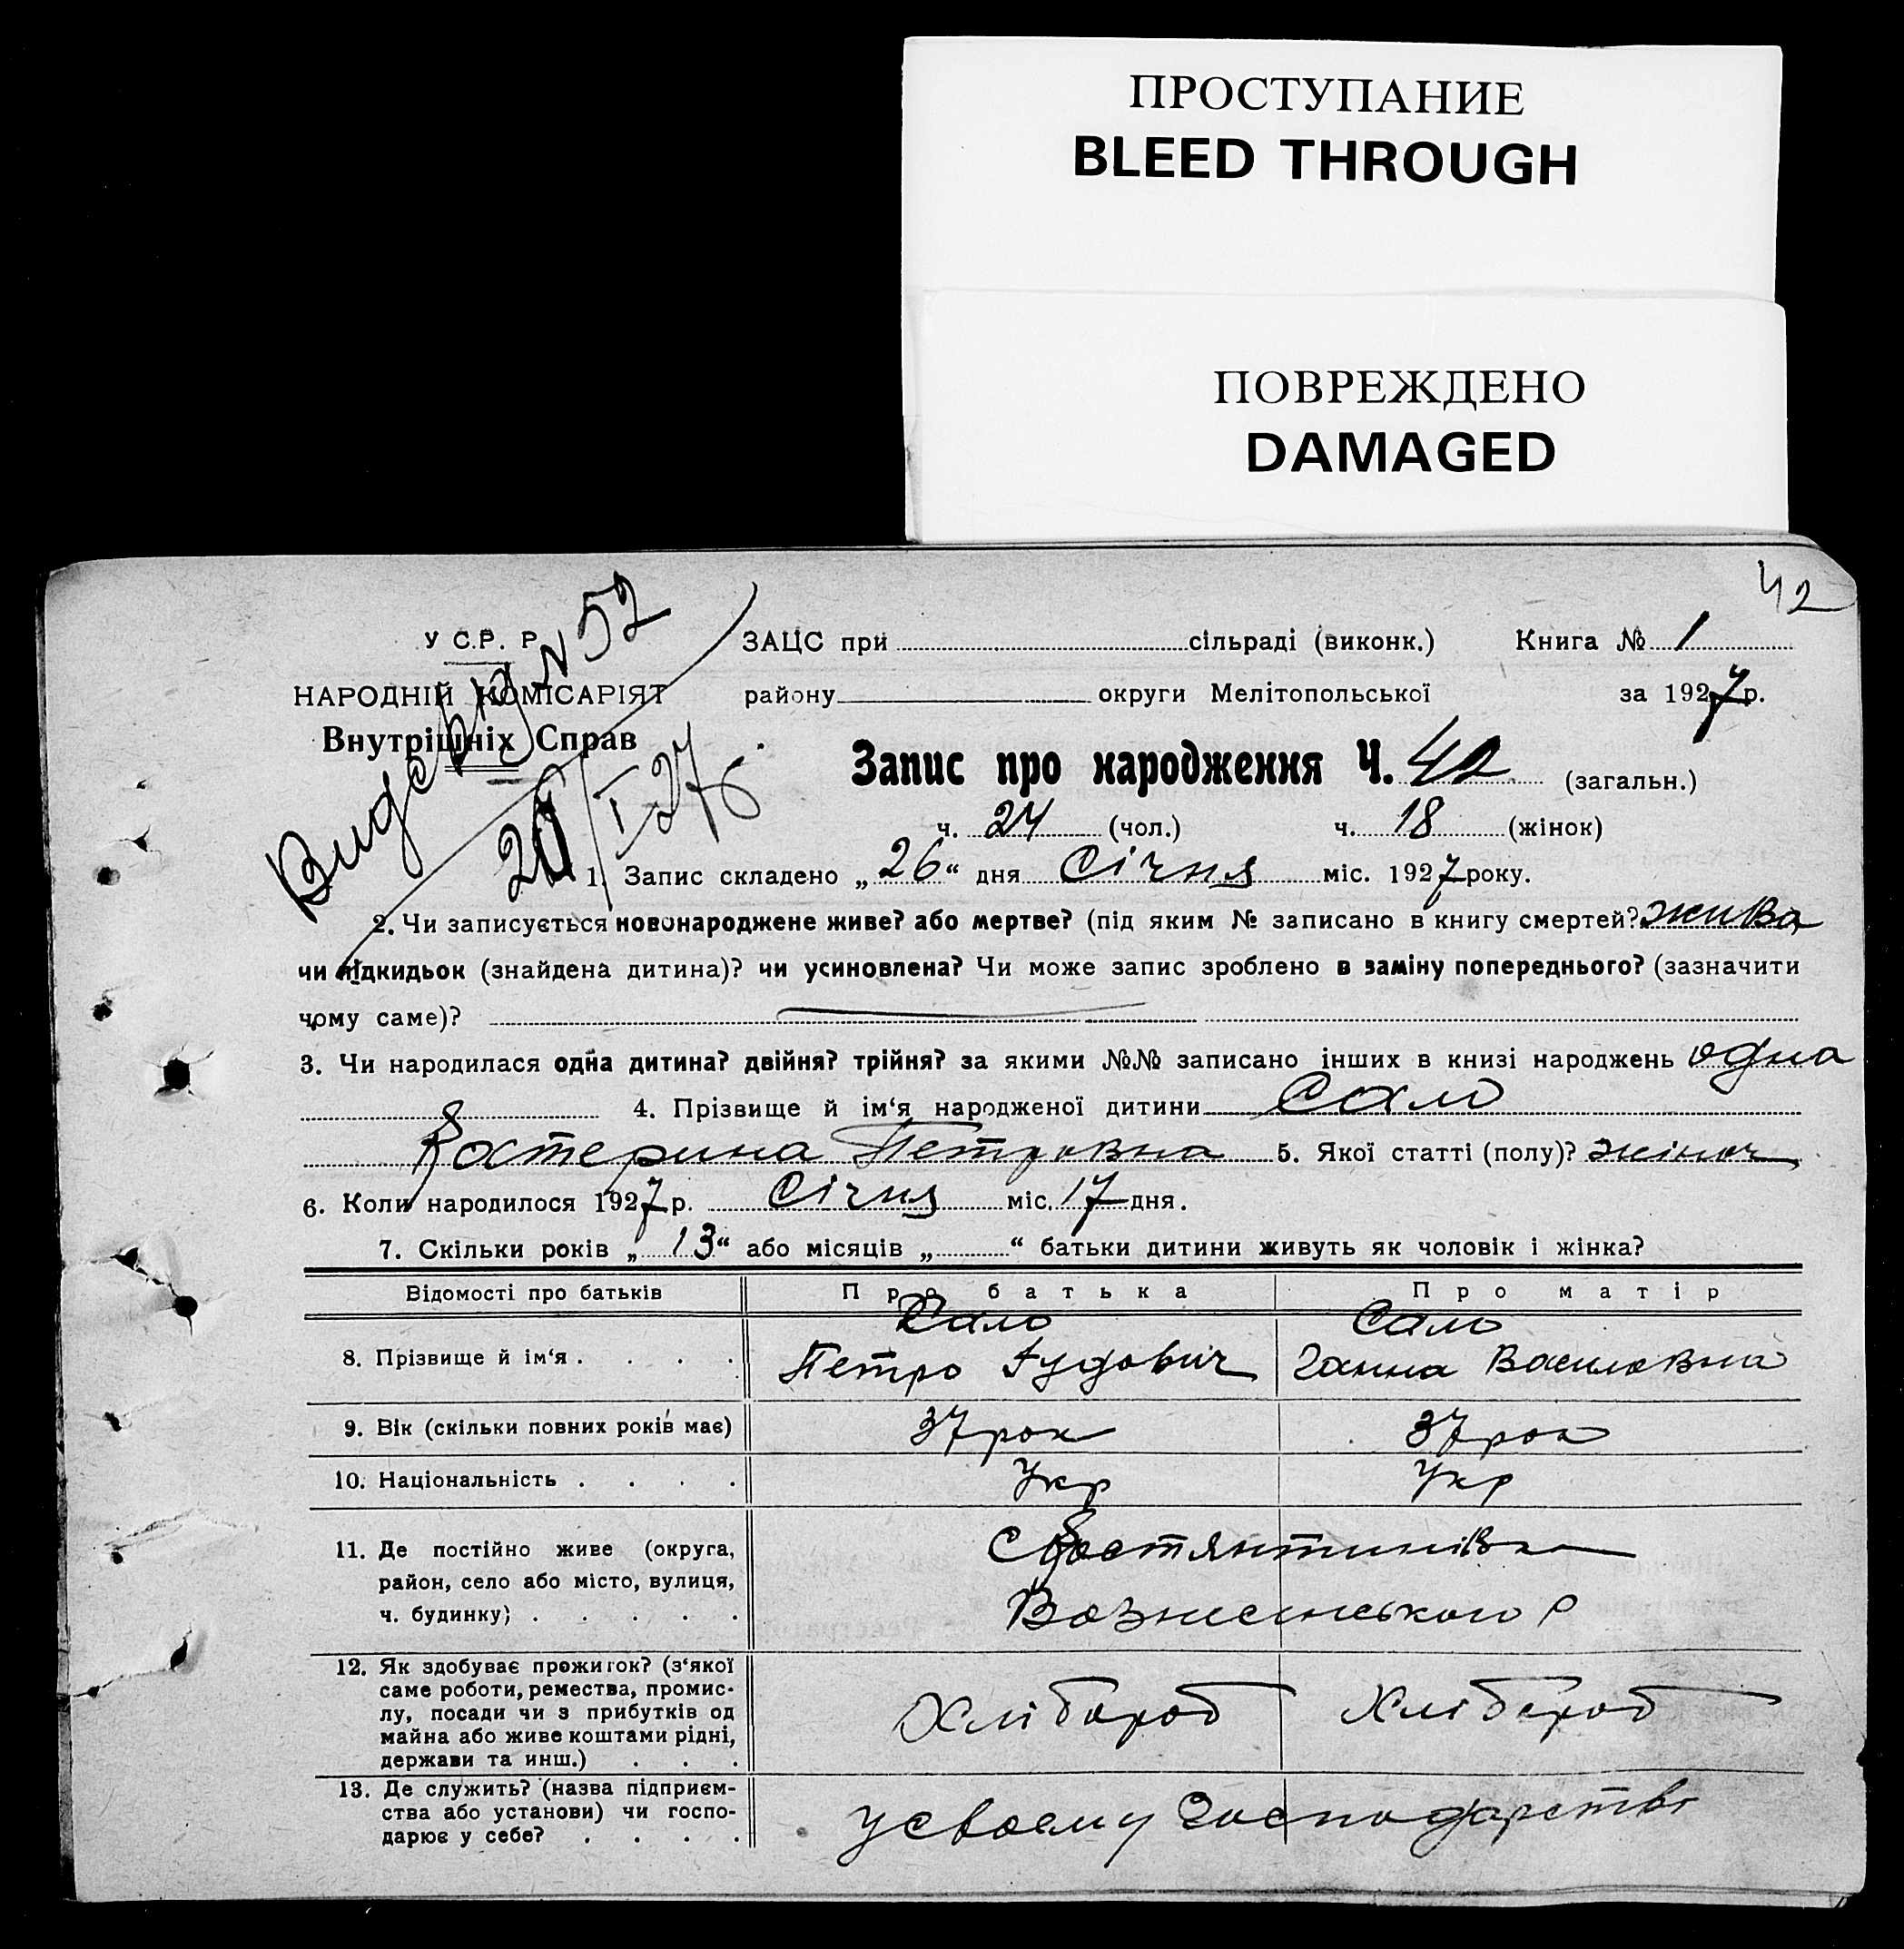 ПРОСТУПАНИЕ
BLEED THROUGH
ПОВРЕЖДЕНО
DAMAGED
42
У С.Р. Р.
НАРОДНІЙ КОМІСАРІЯТ
Внутрішніх Справ
N 52
ЗАЦС при сільраді (виконк.) Книга № 1
району округи Мелітопольської за 1927 р.
Запис про народження Ч. 42 (загальн.)
ч. 24 (чол.) ч. 18 (жінок)
1. Запис складено „26“ дня Січня міс. 1927 року.
2. Чи записується новонароджене живе? або мертве? (під яким № записано в книгу смертей? жива
чи підкидьок (знайдена дитина)? чи усиновлена? Чи може запис зроблено в заміну попереднього? (зазначити
чому саме)?
3. Чи народилася одна дитина? двійня? трійня? за якими №№ записано інших в книзі народжень одна
4. Прізвище й ім‘я народженої дитини Сало
Катерина Петровна 5. Якої статті (полу)? жіноч
6. Коли народилося 1927 р. Січня міс. 17 дня.
7. Скільки років „13“ або місяців „ “ батьки дитини живуть як чоловік і жінка?
Відомості про батьків Про батька Про матір
8. Прізвище й ім‘я . . . . Сало Петро Сало Ганна Василевна
9. Вік (скільки повних років має) 37 рок 37 рок
10. Національність . . . . Укр Укр
11. Де постійно живе (округа,
район, село або місто, вулиця,
ч. будинку) . . . . .
Вознесенського р
12. Як здобуває прожиток? (з‘якої
саме роботи, ремества, промис-
лу, посади чи з прибутків од
майна або живе коштами рідні,
держави та инш.) . . .
Хлібороб Хлібороб
13. Де служить? (назва підприєм-
ства або установи) чи госпо-
дарює у себе? . . . .
у своему господарстві